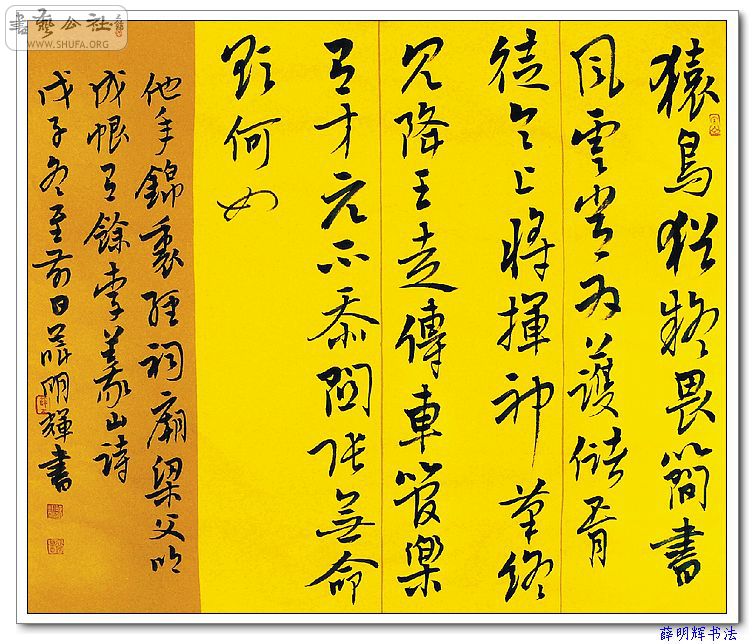 猿鳥猶疑畏簡書
風雲常為護儲胥
徒令上將揮神筆終
見降王走傳車管樂
有才元不忝關張無命
欲何如
他年錦裏經祠廟梁父吟
成恨有餘李義山詩
戊子冬至前日薛明輝書
書藝公社
WWW.SHUFA.ORG
薛明辉书法